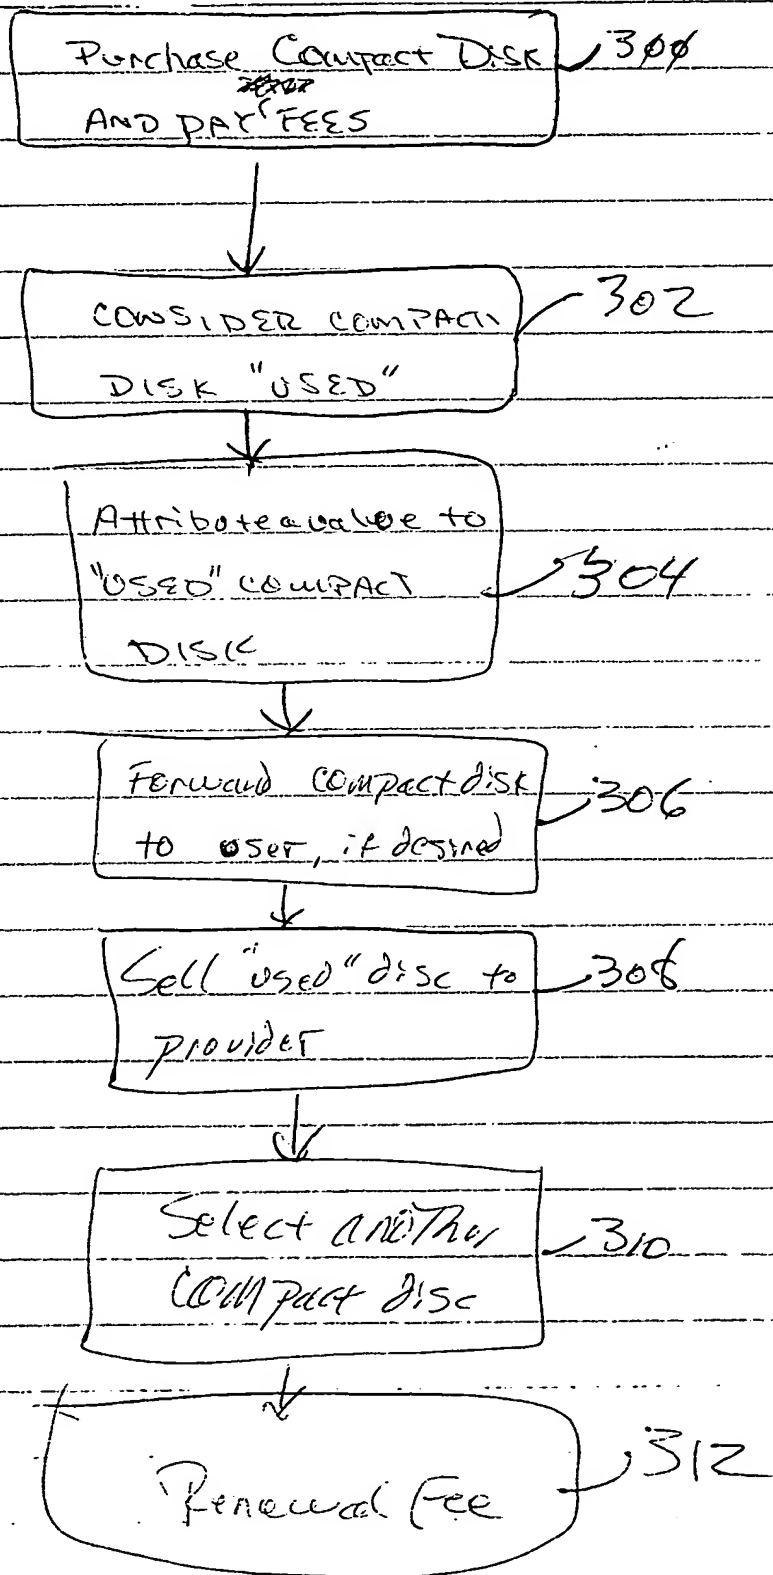 Purchase Compact Disk 300
AND PAY FEES
CONSIDER COMPACT 302
DISK "USED"
Attribute a value to
"USED" COMPACT 304
DISK
Forward compact disk 306
to user, if desired
Sell "used" disc to 308
provider
Select another 310
compact disc
Renewal Fee 312